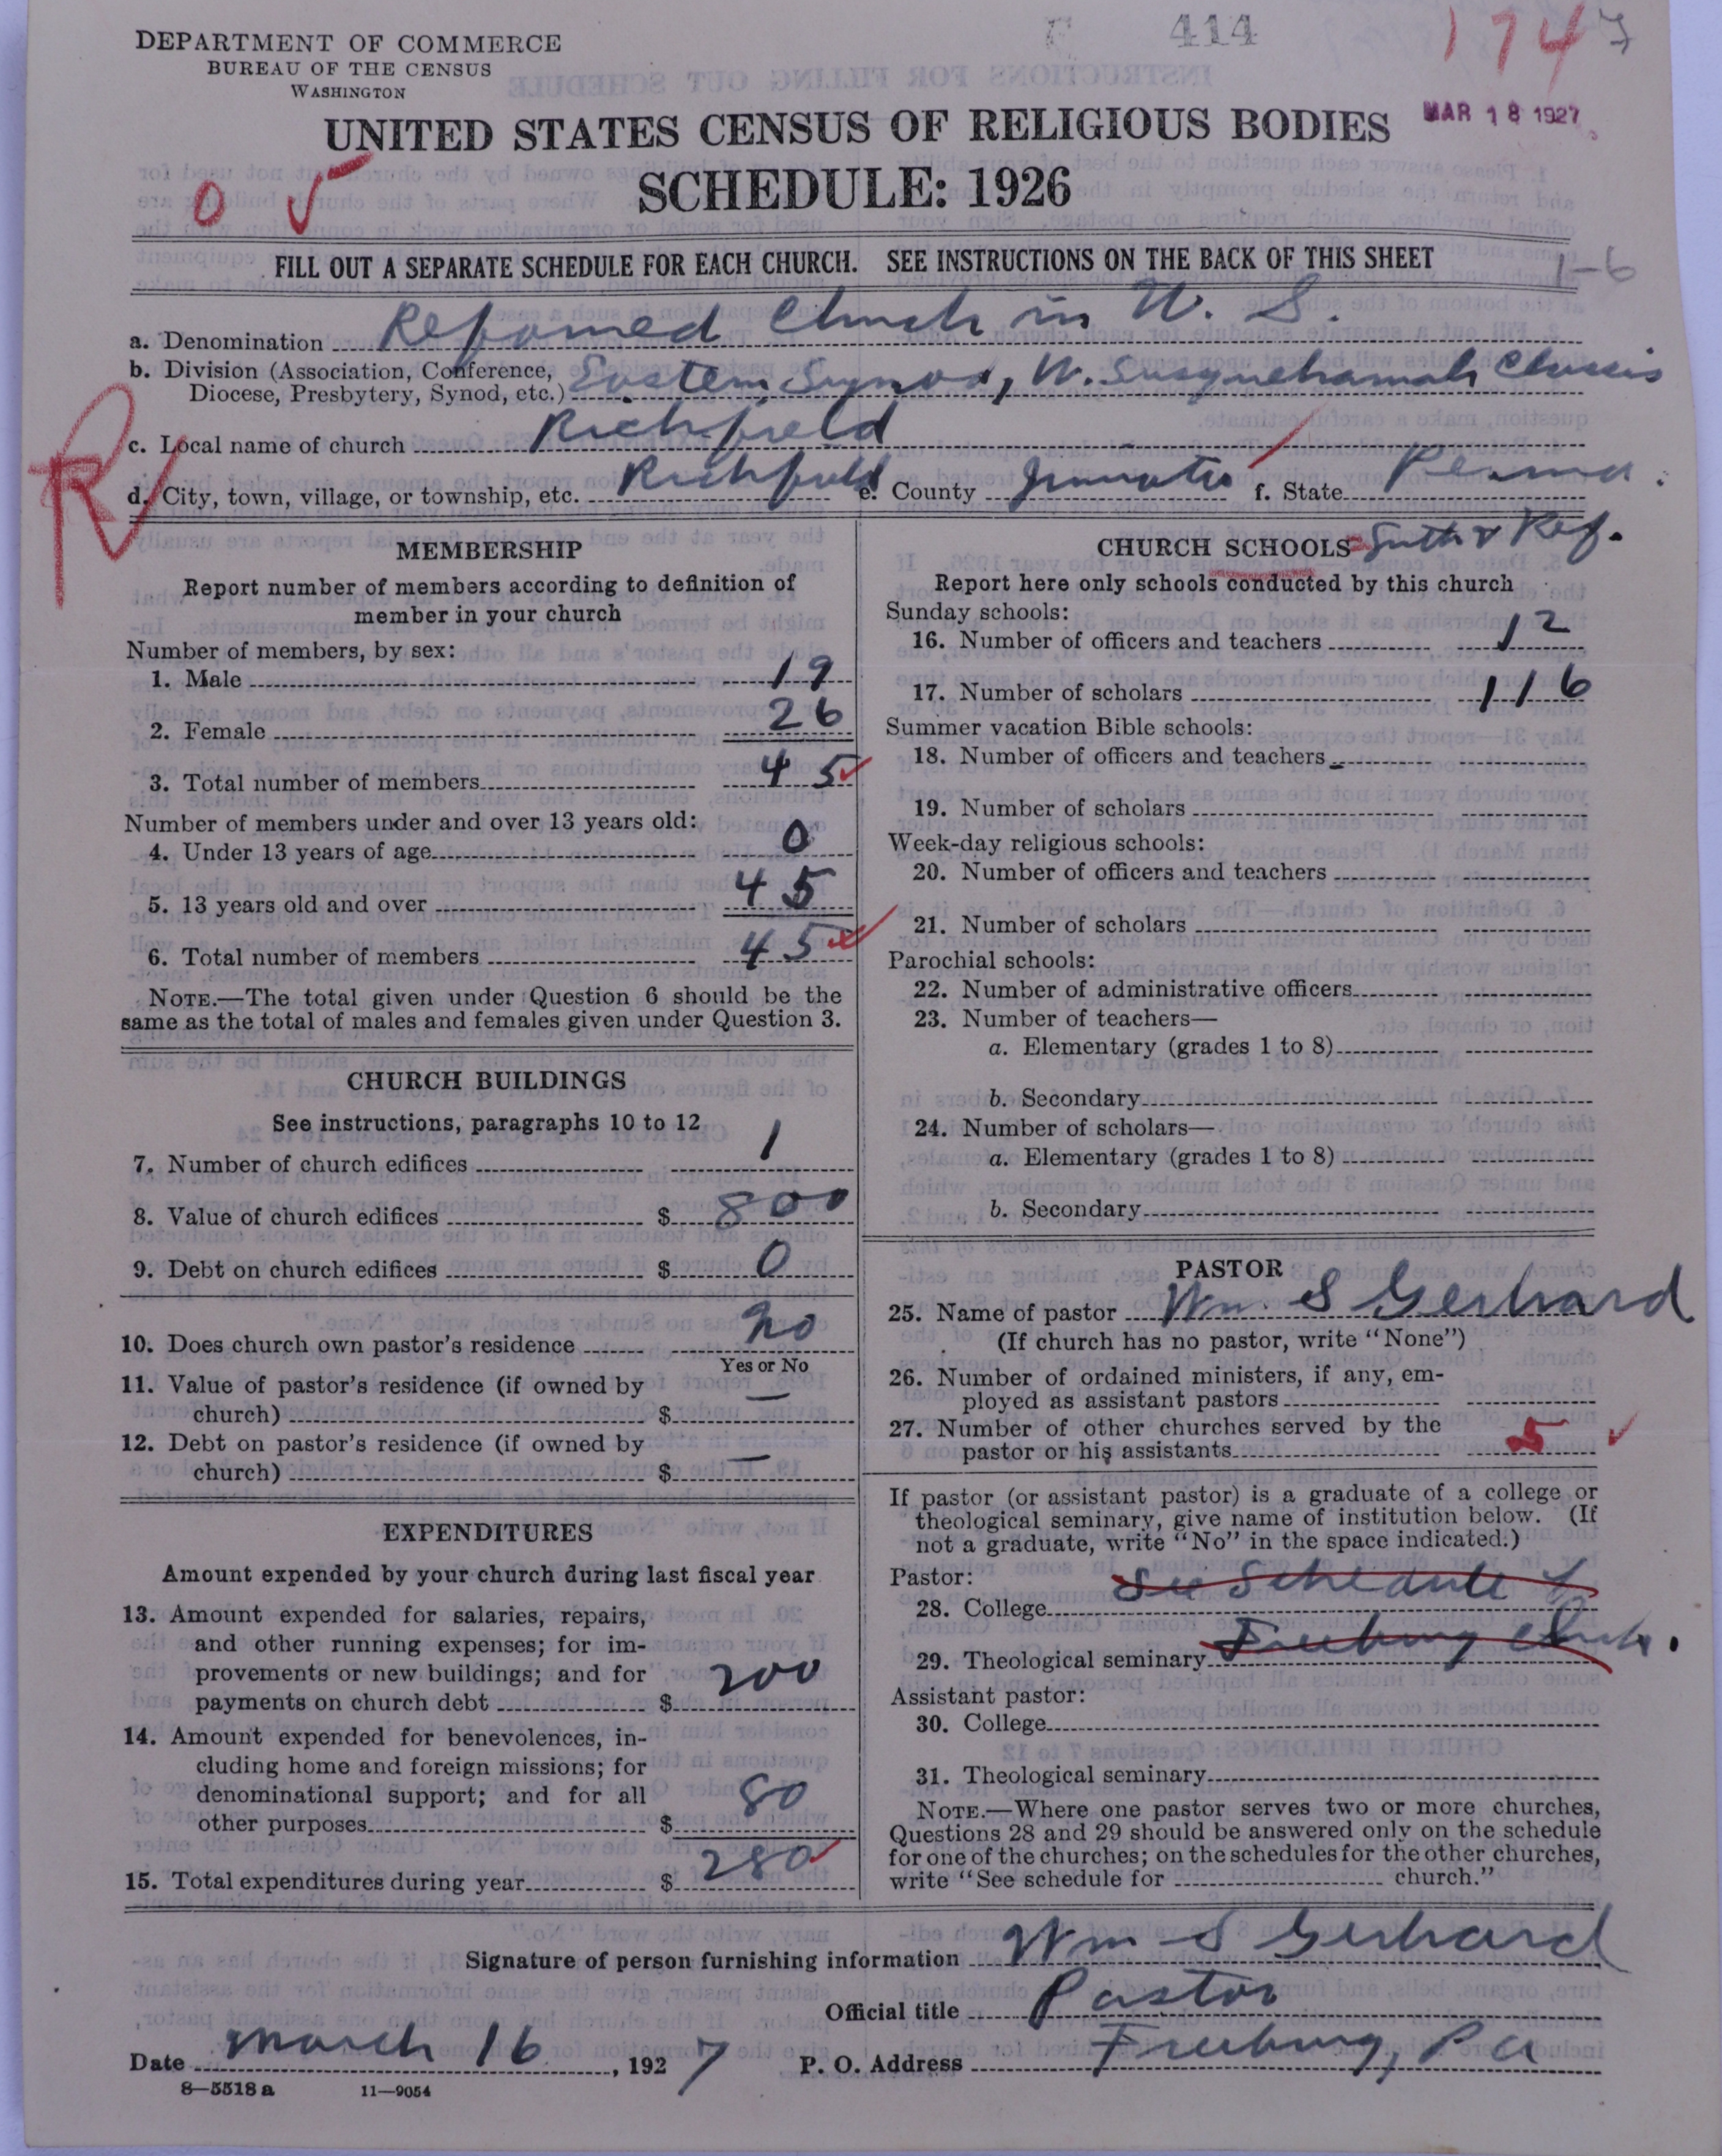 414
1747
DEPARTMENT OF COMMERCE
BUREAU OF THE CENSUS
WASHINGTON
MAR 18 1927
UNITED STATES CENSUS OF RELIGIOUS BODIES
SCHEDULE: 1926
0
FILL OUT A SEPARATE SCHEDULE FOR EACH CHURCH. SEE INSTRUCTIONS ON THE BACK OF THIS SHEET
1-6
a. Denomination Reformed Church in U. S.
b. Division (Association, Conference, Diocese, Presbytery, Synod, etc.) Eastern Synod, W. Susquehannah Classis
c. Local name of church Richfield
d. City, town, village, or township, etc. Richfield e. County Juniata f. State Penna.
R
MEMBERSHIP
Report number of members according to definition of
member in your church
Number of members, by sex:
1. Male 19
2. Female 26
3. Total number of members 45
Number of members under and over 13 years old:
4. Under 13 years of age 0
5. 13 years old and over 45
6. Total number of members 45
NOTE.—The total given under Question 6 should be the
same as the total of males and females given under Question 3.
CHURCH BUILDINGS
See instructions, paragraphs 10 to 12
7. Number of church edifices 1
8. Value of church edifices $ 800
9. Debt on church edifices $ 0
10. Does church own pastor's residence no
Yes or No
11. Value of pastor's residence (if owned by
church) $ —
12. Debt on pastor's residence (if owned by
church) $ —
EXPENDITURES
Amount expended by your church during last fiscal year
13. Amount expended for salaries, repairs,
and other running expenses; for im-
provements or new buildings; and for
payments on church debt $ 200
14. Amount expended for benevolences, in-
cluding home and foreign missions; for
denominational support; and for all
other purposes $ 80
15. Total expenditures during year $ 280
CHURCH SCHOOLS Luth & Ref.
Report here only schools conducted by this church
Sunday schools:
16. Number of officers and teachers 12
17. Number of scholars 116
Summer vacation Bible schools:
18. Number of officers and teachers
19. Number of scholars
Week-day religious schools:
20. Number of officers and teachers
21. Number of scholars
Parochial schools:
22. Number of administrative officers
23. Number of teachers—
a. Elementary (grades 1 to 8)
b. Secondary
24. Number of scholars—
a. Elementary (grades 1 to 8)
b. Secondary
PASTOR
25. Name of pastor Wm. S Gerhard
(If church has no pastor, write "None")
26. Number of ordained ministers, if any, em-
ployed as assistant pastors
27. Number of other churches served by the
pastor or his assistants 5
If pastor (or assistant pastor) is a graduate of a college or
theological seminary, give name of institution below. (If
not a graduate, write "No" in the space indicated.)
Pastor:
28. College See Schedule of
29. Theological seminary Freeburg Chch.
Assistant pastor:
30. College
31. Theological seminary
NOTE.—Where one pastor serves two or more churches,
Questions 28 and 29 should be answered only on the schedule
for one of the churches; on the schedules for the other churches,
write "See schedule for church."
Signature of person furnishing information Wm S Gerhard
Official title Pastor
Date March 16, 1927 P. O. Address Freeburg, Pa
8—5518 a 11—9054